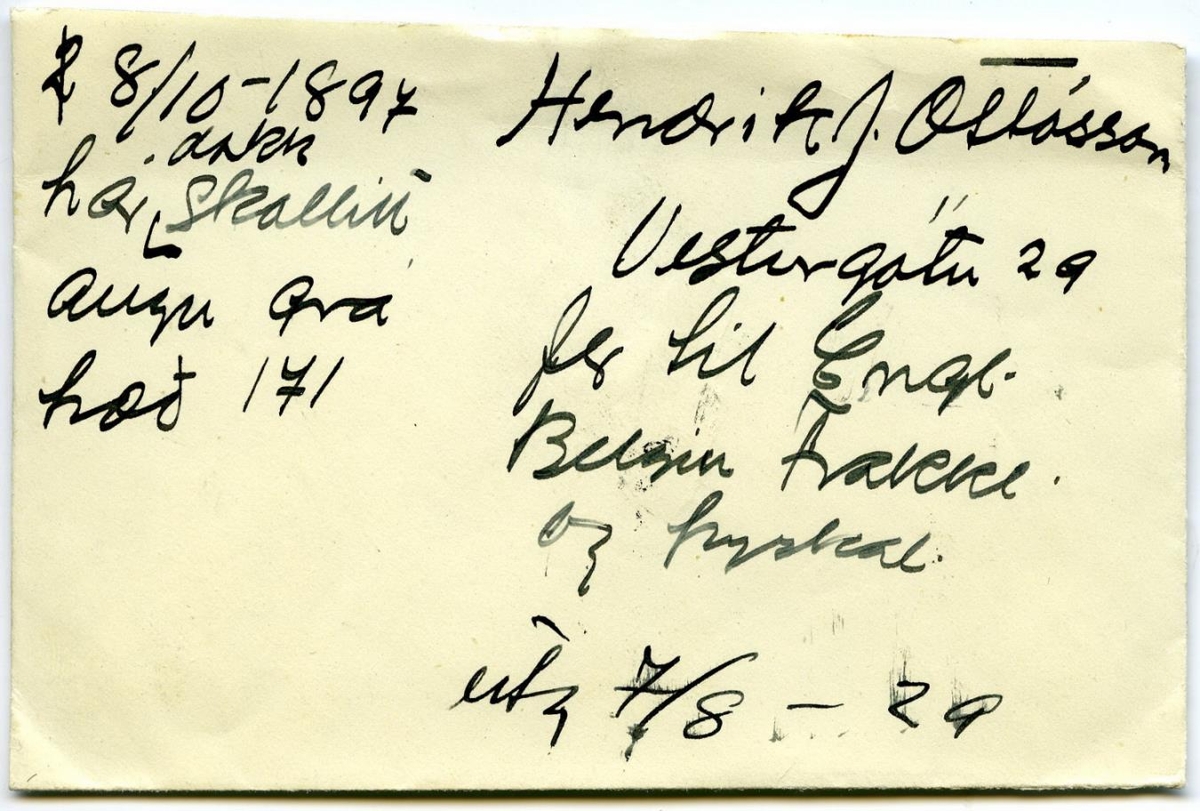 f 8/10-1897
dökk
hár, skollitt
augu grá
hæð 171
Hendrik J. Ottósson
Vesturgötu 29
fer til Engl.
Belgíu Frakkl.
og Þyskal.
útg 7/8 - 29